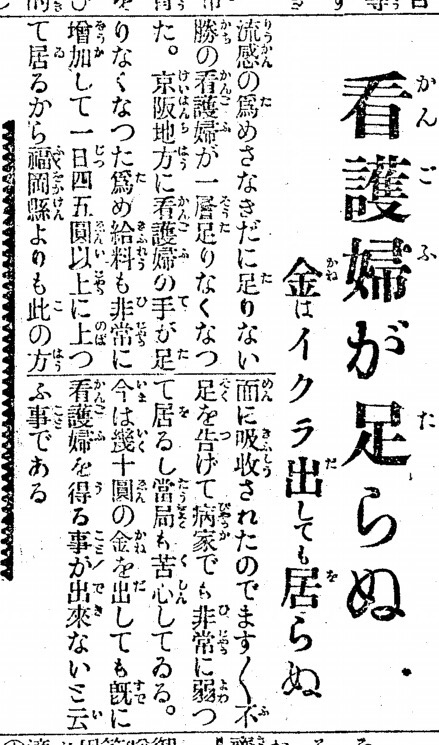 看護婦が足らぬ
金はイクラ出しても居らぬ
流感の爲めさなきだに足りない
勝の看護婦が一層足りなくなつ
た。京阪地方に看護婦の手が足
りなくなつた爲め給料も非常に
增加して一日四五圓以上に上つ
て居るから福岡縣よりも此の方
面に吸收されたのでます〱不
足を告げて病家でも非常に弱つ
て居るし當局も苦心してゐる。
今は幾十圓の金を出しても旣に
看護婦を得る事が出來ないと云
ふ事である